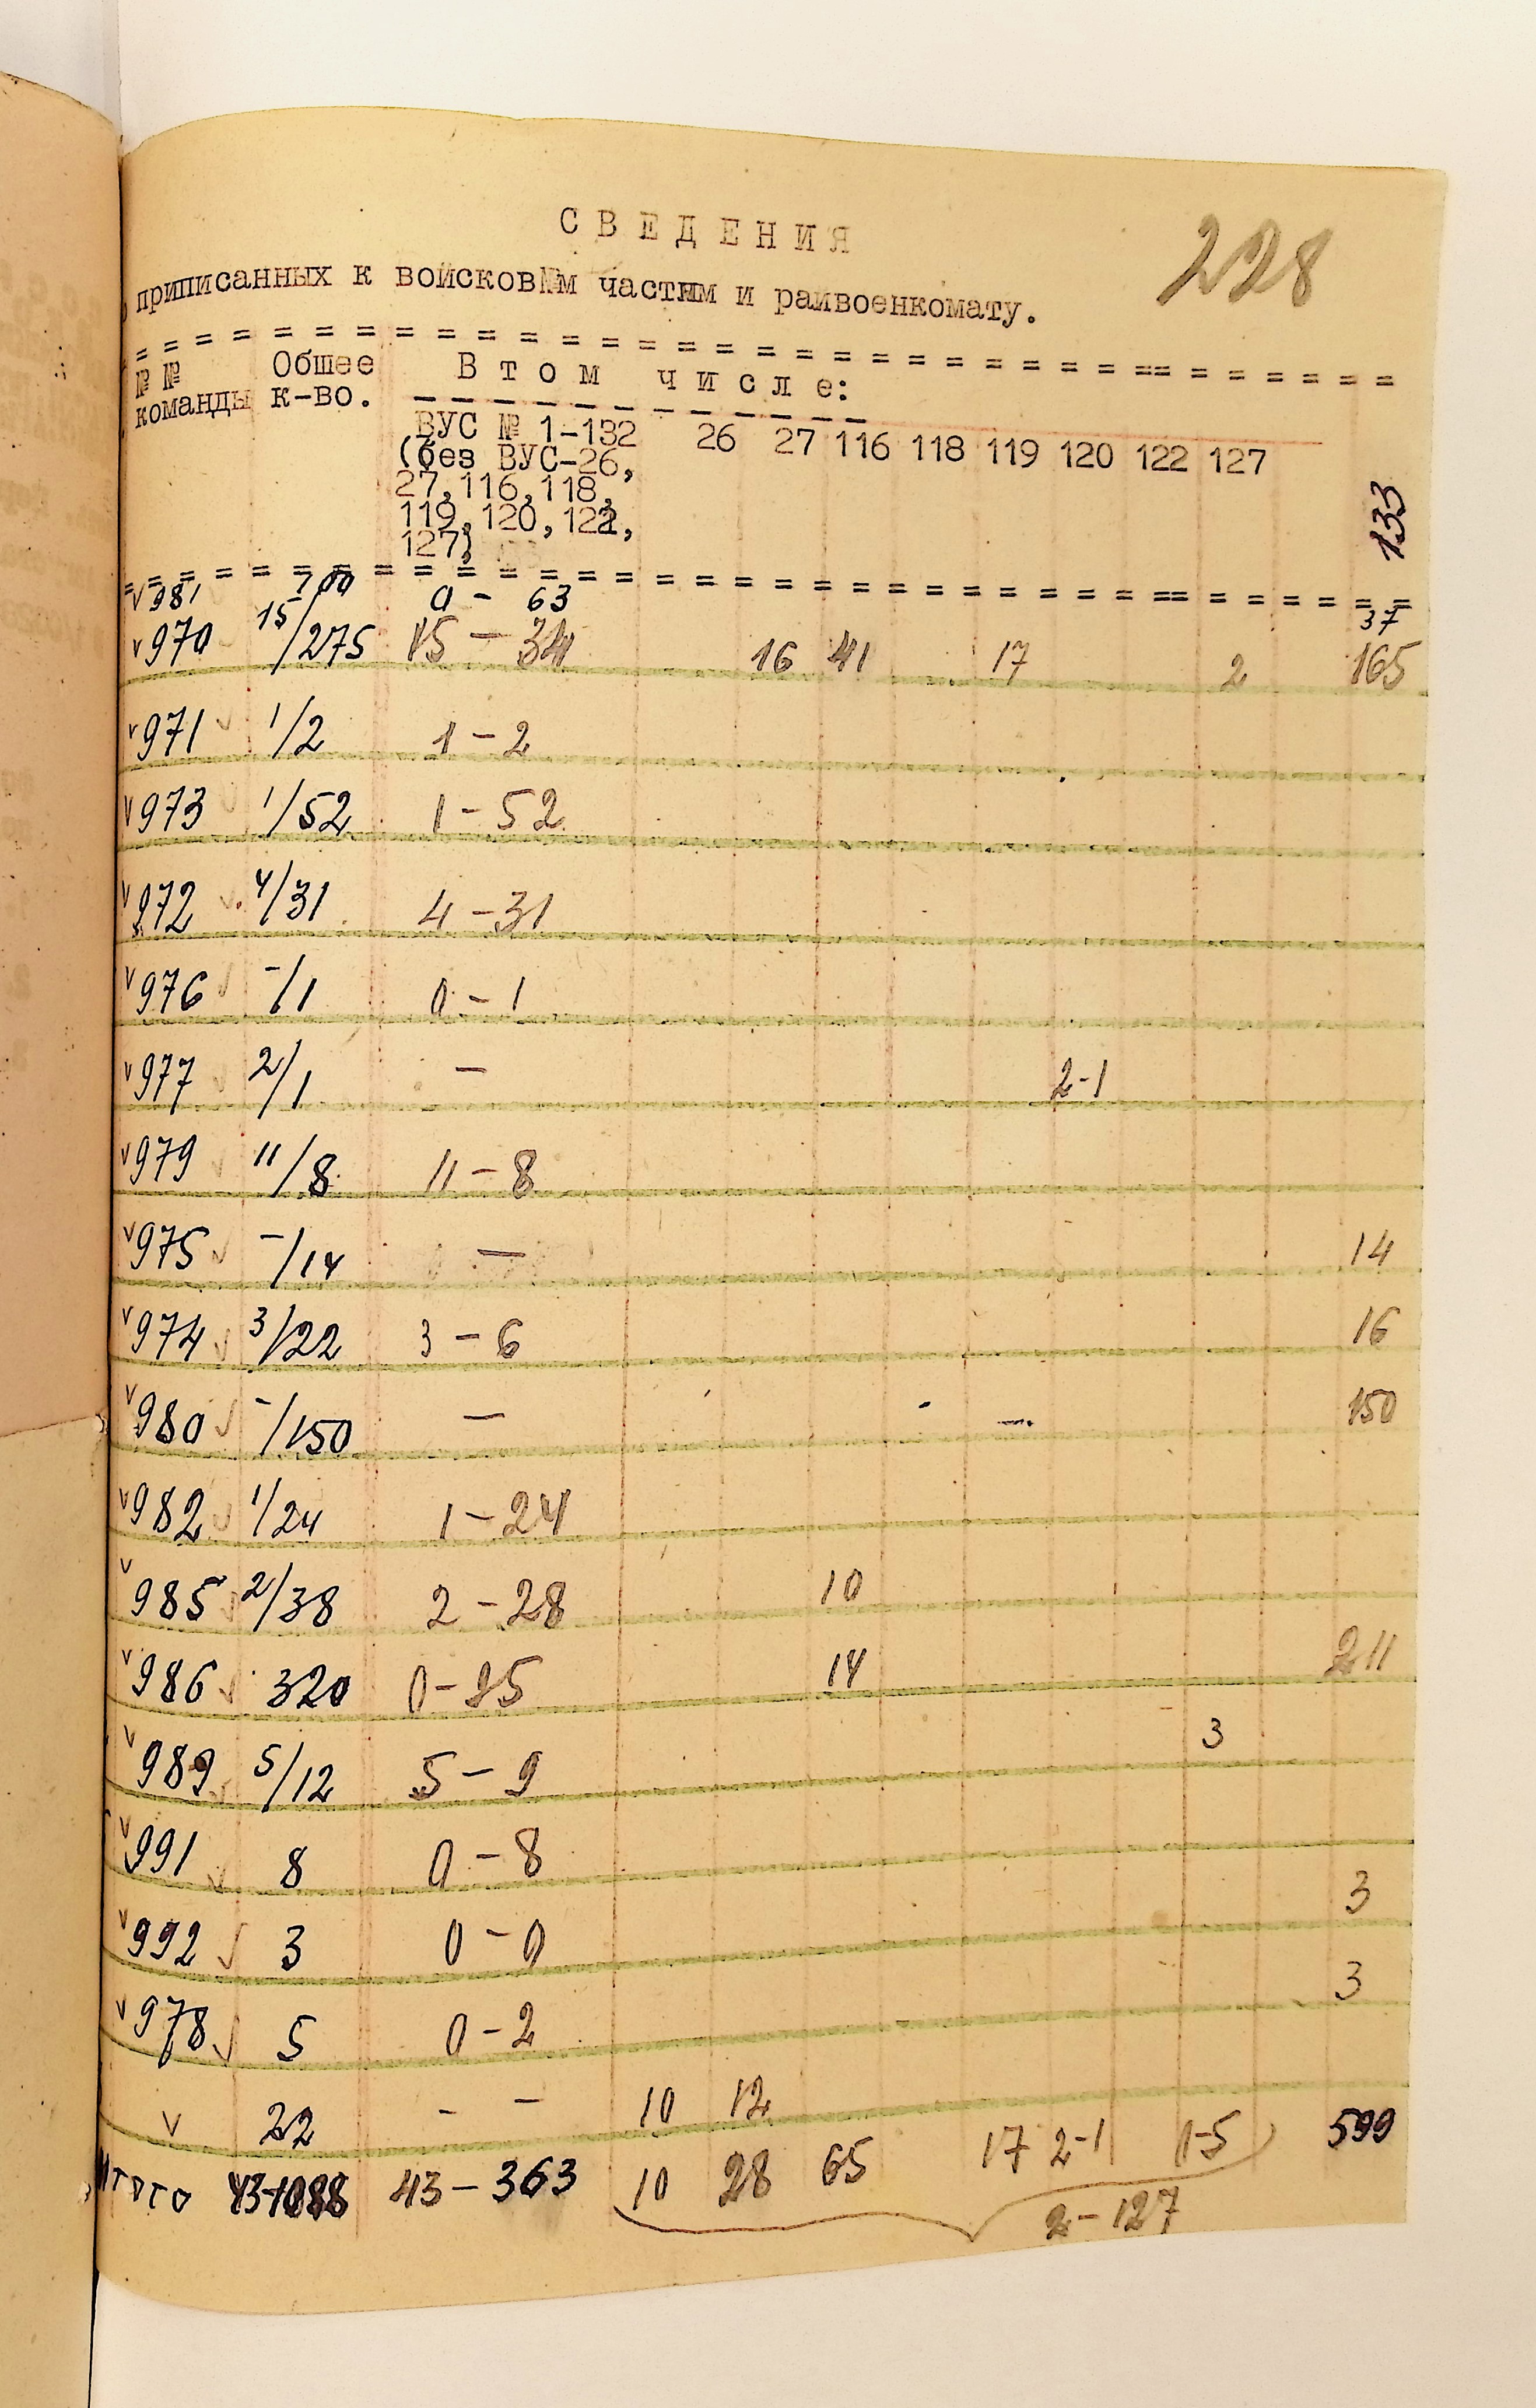 СВЕДЕНИЯ
228
приписанных к войсковым частям и райвоенкомату.
№№ Общее В том числе:
команды к-во.
ВУС № 1-132 26 27 116 118 119 120 122 127
(без ВУС-26,
27,116,118,
119,120,122,
127)
133
981 100 0 - 63 37
970 15/275 15 - 34 16 41 17 2 165
971 1/2 1 - 2
973 1/52 1 - 52
972 4/31 4 - 31
976 -/1 0 - 1
977 2/1 - 2-1
979 11/8 11 - 8
975 -/14 - 14
974 3/22 3 - 6 16
980 -/150 - 150
982 1/24 1 - 24
985 2/38 2 - 28 10
986 320 0 - 95 14 211
989 5/12 5 - 9 3
991 8 0 - 8
992 3 0 - 0 3
978 5 0 - 2 3
22 - - 10 12
Итого 43-1088 43 - 363 10 28 65 17 2-1 0-5 599
2-127